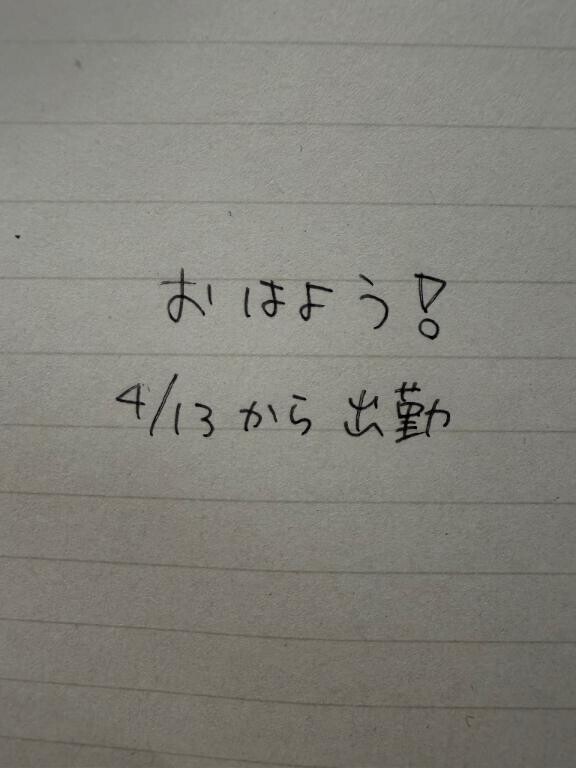 おはよう!
4/13から出勤